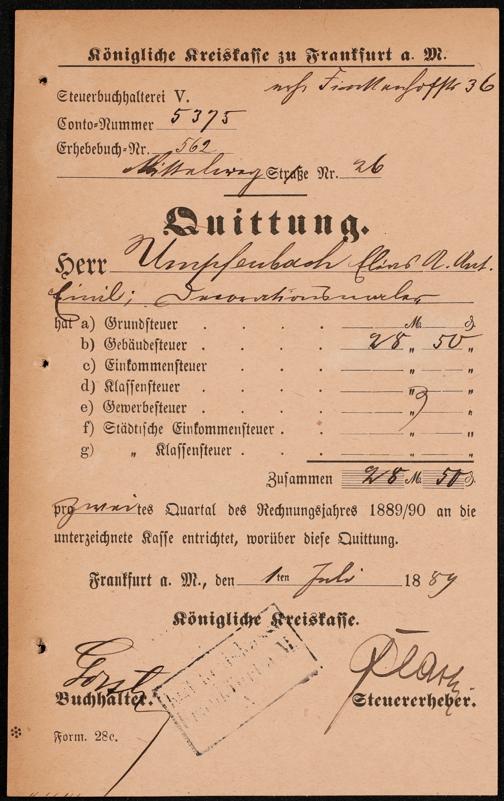 Königliche Kreiskasse zu Frankfurt a. M.
Finkenhofstr 36
Steuerbuchhalterei V.
Conto-Nummer 5375
Erhebebuch-Nr. 562
Mittelweg Straße Nr. 26
Quittung.
Herr Umpfenbach Elias A. Ant.
Emil; Decorationsmaler
hat a) Grundsteuer . . . . M. ₰
b) Gebäudesteuer . . . . 28 „ 50 „
c) Einkommensteuer . . . „ „
d) Klassensteuer . . . . „ „
e) Gewerbesteuer . . . . „ „
f) Städtische Einkommensteuer . . „ „
g) „ Klassensteuer . . . „ „
Zusammen 28 M. 50 ₰
pro zweites Quartal des Rechnungsjahres 1889/90 an die
unterzeichnete Kasse entrichtet, worüber diese Quittung.
Frankfurt a. M., den 1ten Juli 1889
Königliche Kreiskasse.
Buchhalter. Steuererheber.
Form. 28c.